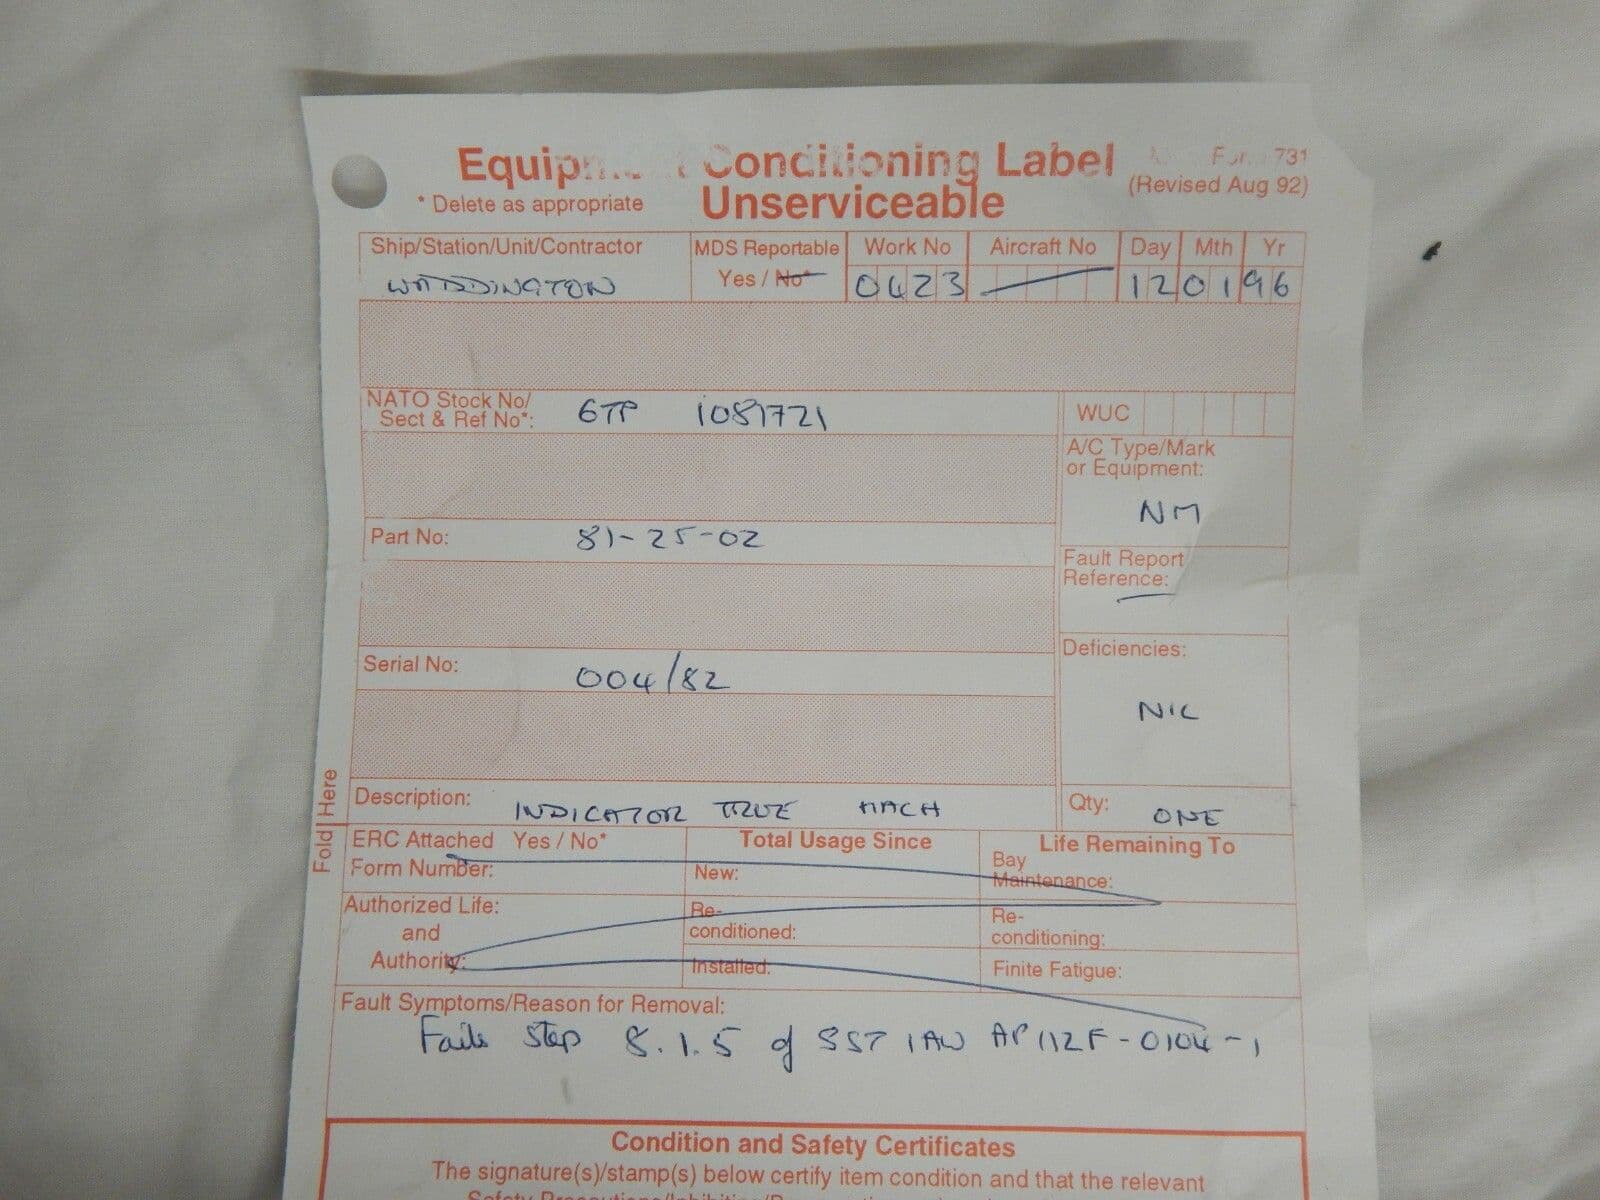 Conditioning Label
731
* Delete as appropriate
Unserviceable
(Revised Aug 92)
Ship/Station/Unit/Contractor
MDS Reportable
Work No
Aircraft No
Day
Mth
Yr
WADDINGTON
Yes / No*
0423
12
01
96
NATO Stock No/
Sect & Ref No*:
6TP 1081721
WUC
A/C Type/Mark
or Equipment:
NM
Part No:
81-25-02
Fault Report
Reference:
Serial No:
004/82
Deficiencies:
NIL
Description:
INDICATOR TRUE MACH
Qty:
ONE
Fold Here
ERC Attached Yes / No*
Form Number:
Total Usage Since
New:
Life Remaining To
Bay
Maintenance:
Authorized Life:
and
Authority:
Re-
conditioned:
Re-
conditioning:
Installed:
Finite Fatigue:
Fault Symptoms/Reason for Removal:
Fails step 8.1.5 of SST IAW AP112F-0104-1
Condition and Safety Certificates
The signature(s)/stamp(s) below certify item condition and that the relevant